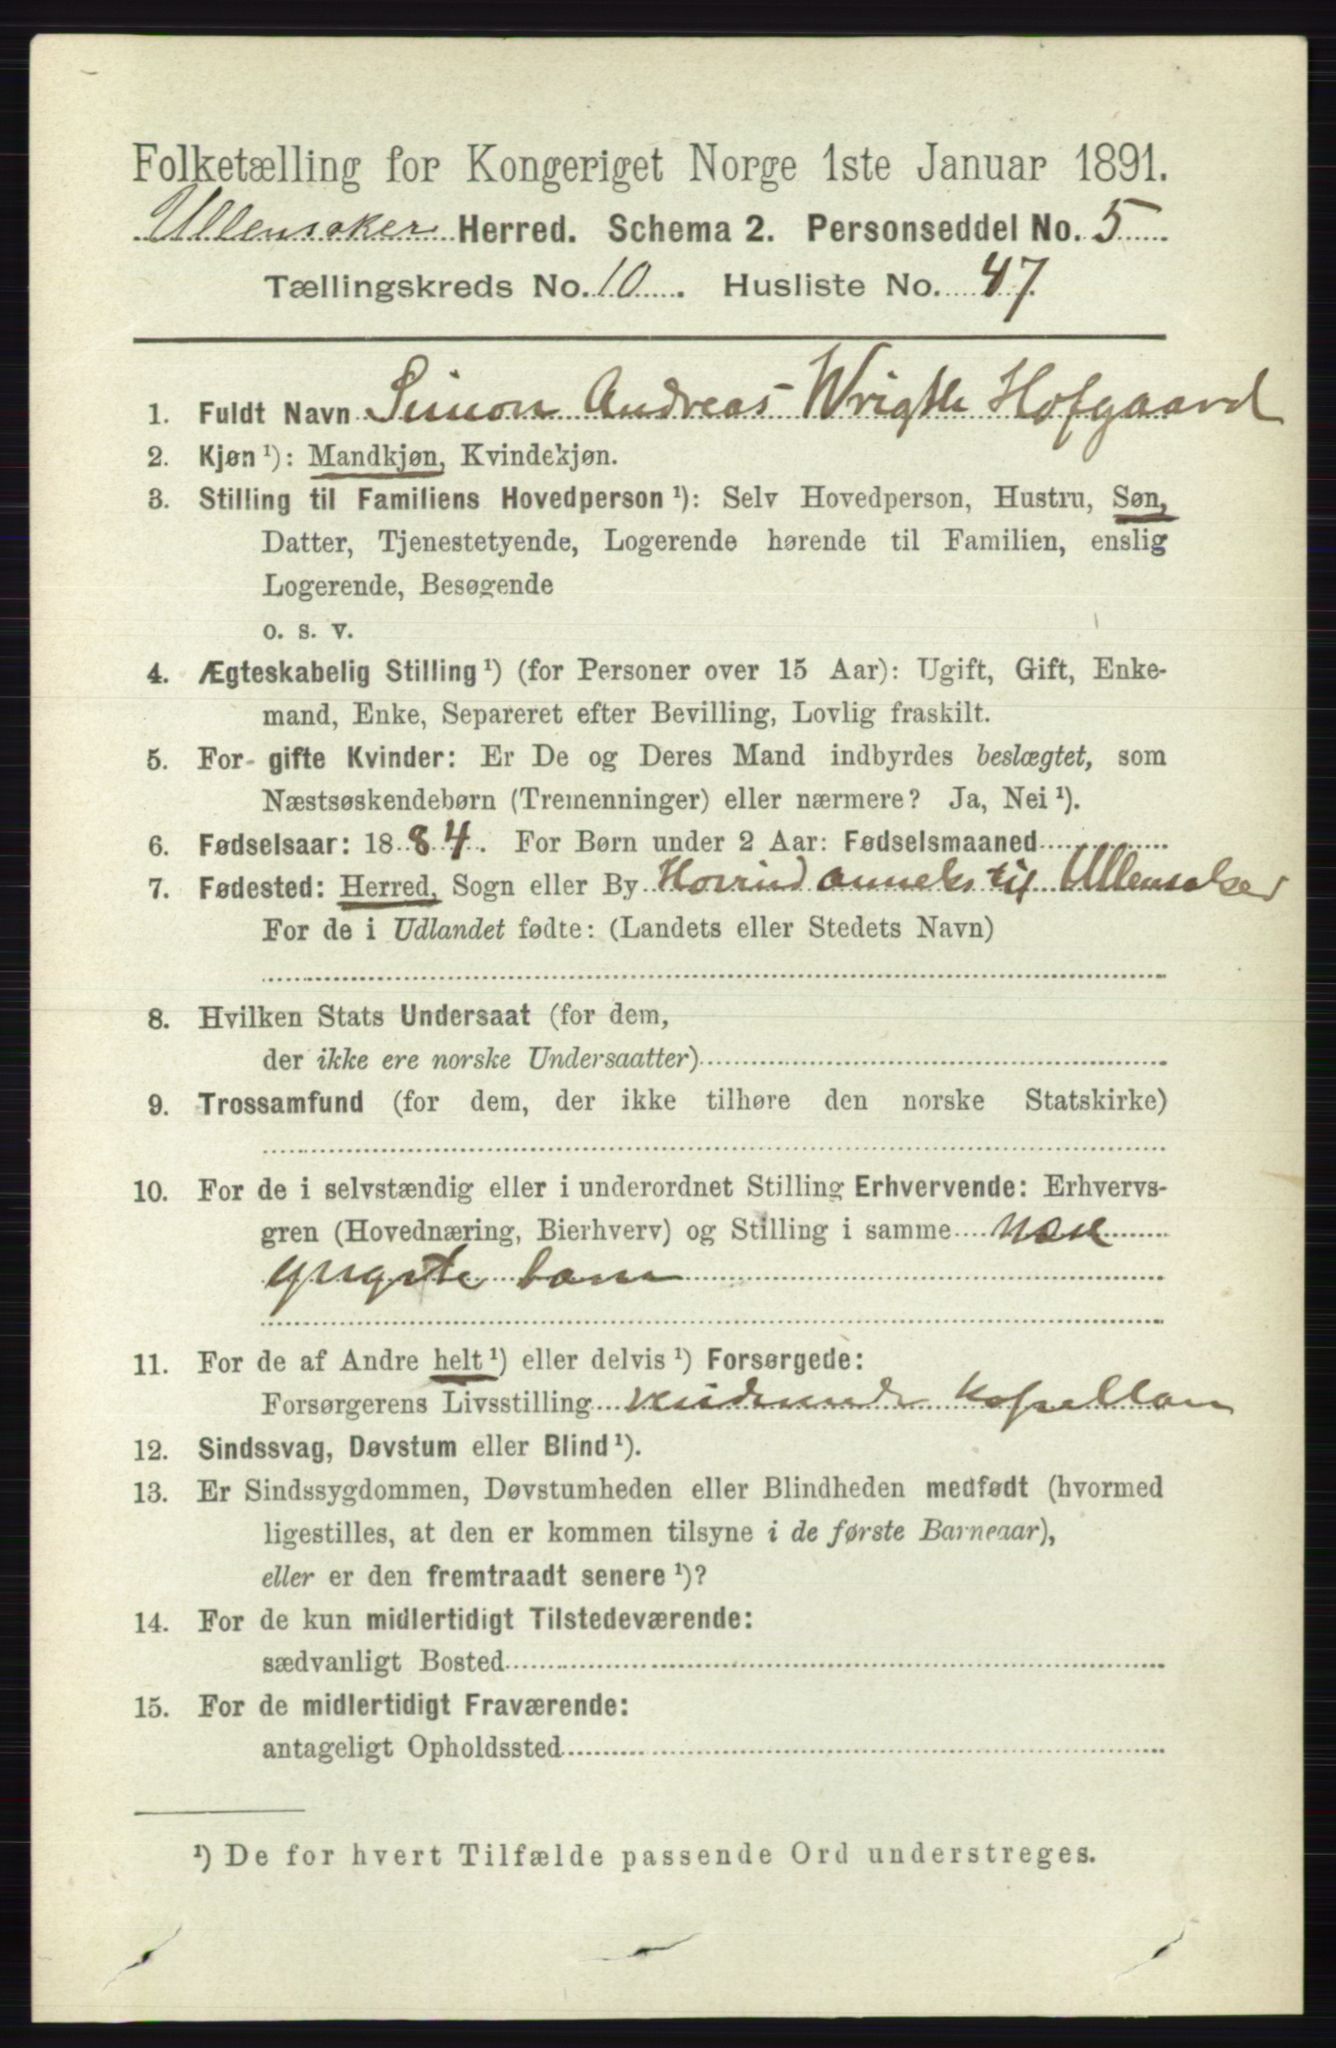 Folketælling for Kongeriget Norge 1ste Januar 1891.
Ullensaker Herred. Schema 2. Personseddel No. 5
Tællingskreds No. 10. Husliste No. 47.
1. Fuldt Navn Simon Andreas Wright Hofgaard
2. Kjøn ¹): Mandkjøn, Kvindekjøn.
3. Stilling til Familiens Hovedperson ¹): Selv Hovedperson, Hustru, Søn,
Datter, Tjenestetyende, Logerende hørende til Familien, enslig
Logerende, Besøgende
o. s. v.
4. Ægteskabelig Stilling ¹) (for Personer over 15 Aar): Ugift, Gift, Enke-
mand, Enke, Separeret efter Bevilling, Lovlig fraskilt.
5. For gifte Kvinder: Er De og Deres Mand indbyrdes beslægtet, som
Næstsøskendebørn (Tremenninger) eller nærmere? Ja, Nei ¹).
6. Fødselsaar: 1884. For Børn under 2 Aar: Fødselsmaaned
7. Fødested: Herred, Sogn eller By Hovind anneks til Ullensaker
For de i Udlandet fødte: (Landets eller Stedets Navn)
8. Hvilken Stats Undersaat (for dem,
der ikke ere norske Undersaatter)
9. Trossamfund (for dem, der ikke tilhøre den norske Statskirke)
10. For de i selvstændig eller i underordnet Stilling Erhvervende: Erhvervs-
gren (Hovednæring, Bierhverv) og Stilling i samme
yngste barn
11. For de af Andre helt ¹) eller delvis ¹) Forsørgede:
Forsørgerens Livsstilling residerende kapellan
12. Sindssvag, Døvstum eller Blind ¹).
13. Er Sindssygdommen, Døvstumheden eller Blindheden medfødt (hvormed
ligestilles, at den er kommen tilsyne i de første Barneaar),
eller er den fremtraadt senere ¹)?
14. For de kun midlertidigt Tilstedeværende:
sædvanligt Bosted
15. For de midlertidigt Fraværende:
antageligt Opholdssted
¹) De for hvert Tilfælde passende Ord understreges.